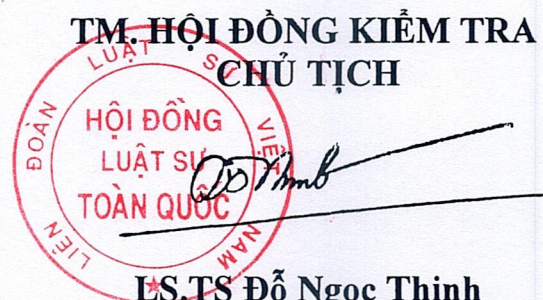 TM. HỘI ĐỒNG KIỂM TRA
CHỦ TỊCH
LIÊN ĐOÀN LUẬT SƯ VIỆT NAM
HỘI ĐỒNG
LUẬT SƯ
TOÀN QUỐC
LS.TS Đỗ Ngọc Thịnh